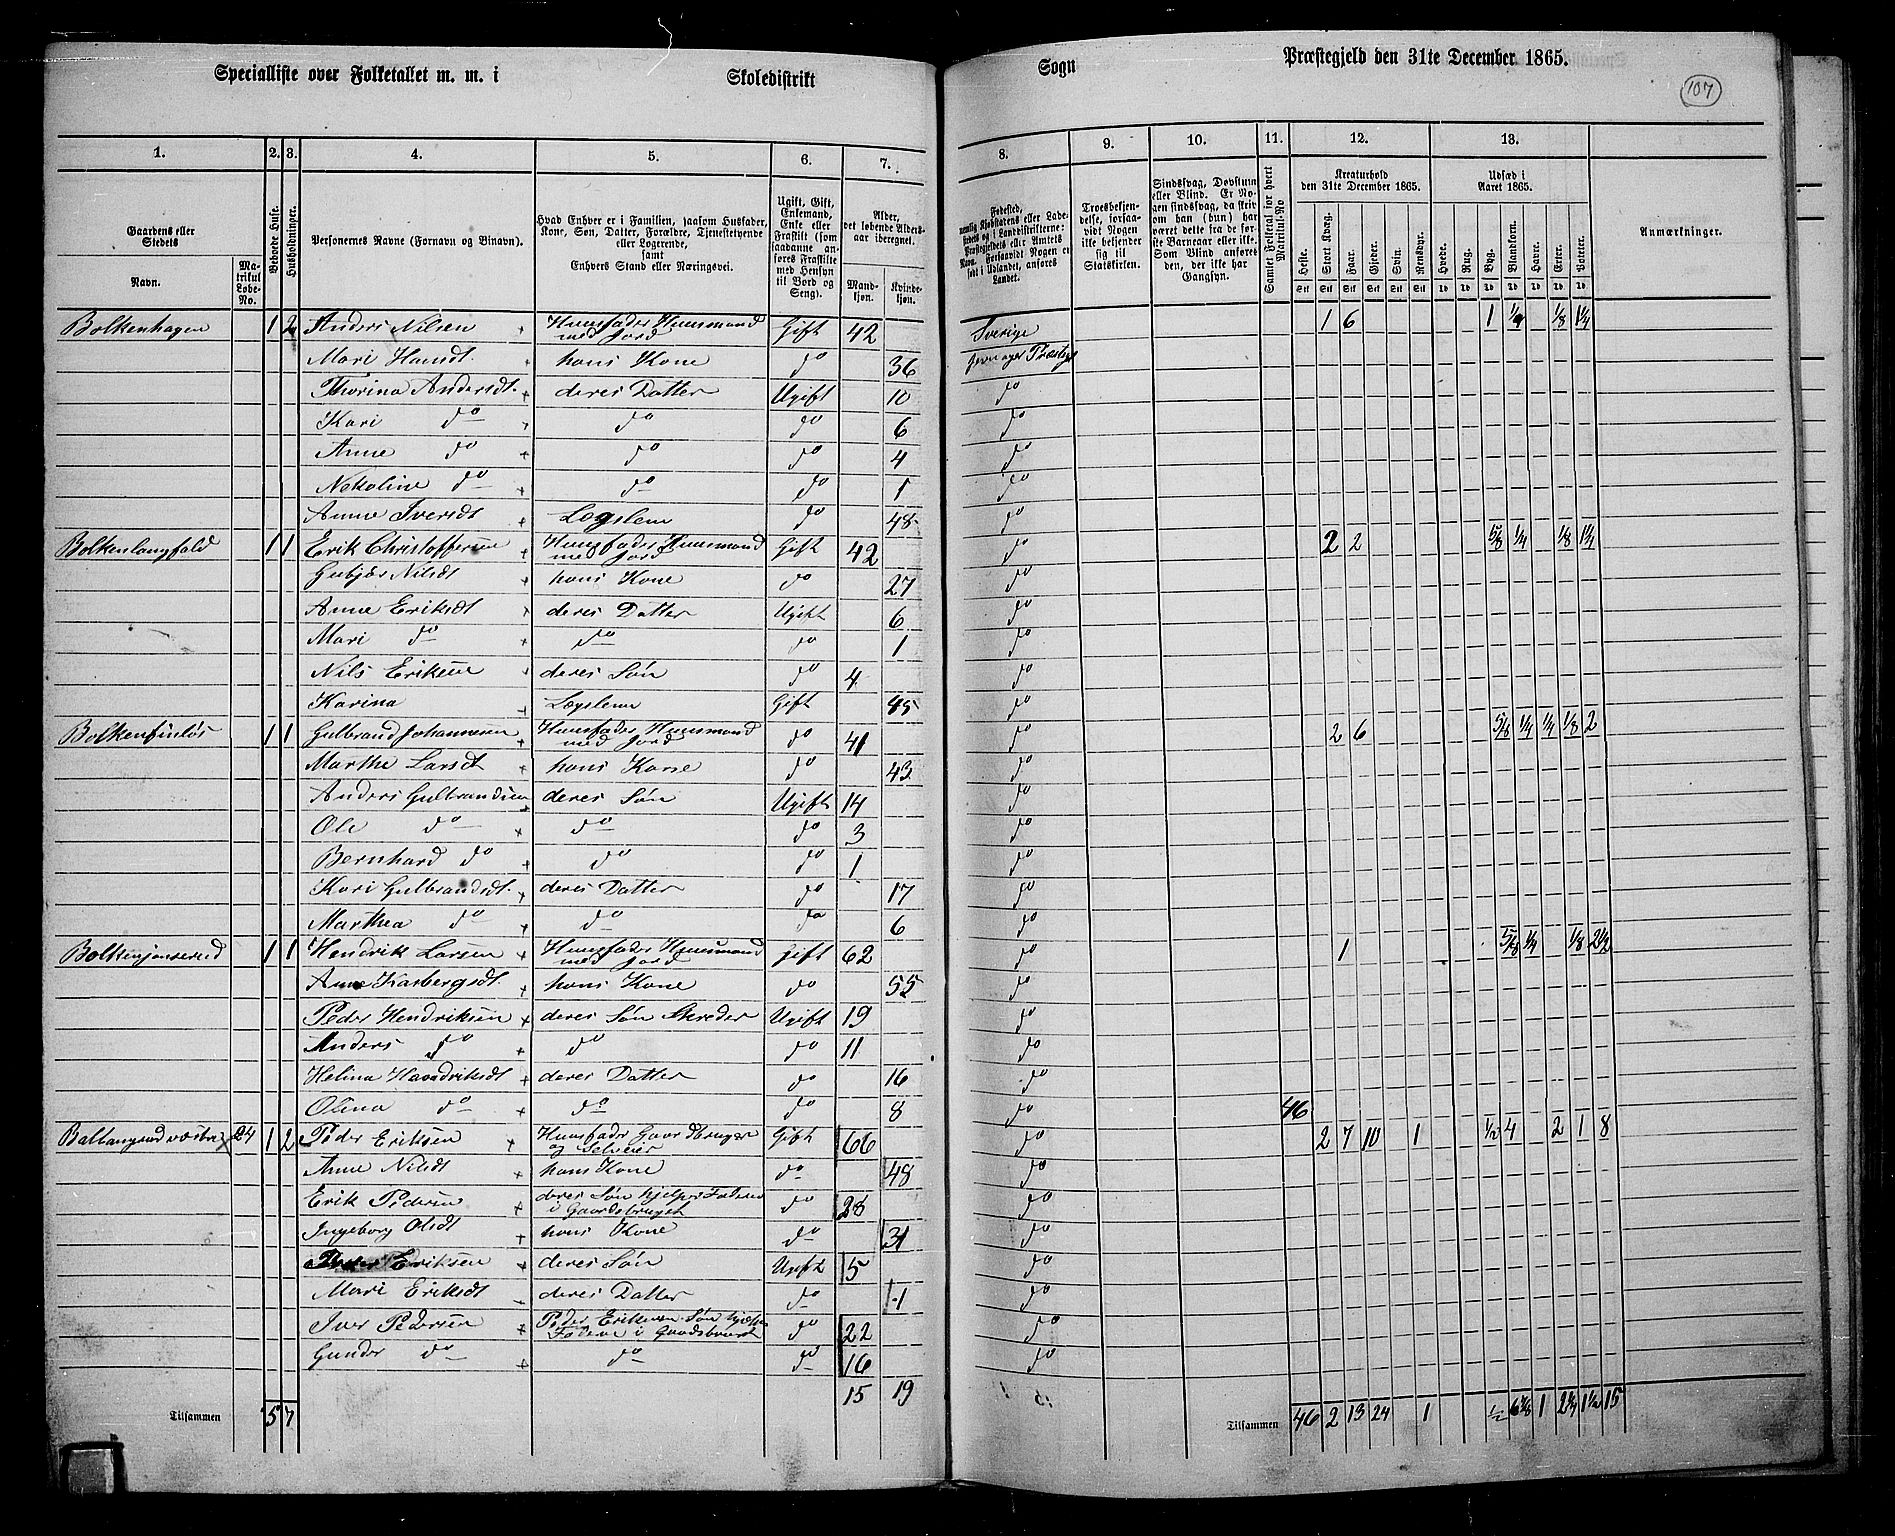 Specialliste over Folketallet m. m. i Skoledistrikt Sogn Præstegjeld den 31te December 1865.
107
1. 2. 3. 4. 5. 6. 7. 8. 9. 10. 11. 12. 13.
Gaardens eller Stedets
Navn.
Matrikul Løbe-No.
Beboede Huse.
Husholdninger.
Personernes Navne (Fornavn og Binavn).
Hvad Enhver er i Familien, saasom Husfader, Kone, Søn, Datter, Forældre, Tjenestetyende eller Logerende, samt Enhvers Stand eller Næringsvei.
Ugift, Gift, Enkemand, Enke eller Fraskilt (som saadanne anføres Fraskilte med Hensyn til Bord og Seng).
Alder, det løbende Alders-aar iberegnet.
Mand-kjøn. Kvinde-kjøn.
Fødested, nemlig Kjøbstadens eller Ladestedets og i Landdistrikterne: Præstegjeldets eller Amtets Navn. Forsaavidt Nogen er født i Udlandet, anføres Landet.
Troesbekjendelse, forsaavidt Nogen ikke bekjender sig til Statskirken.
Sindssvag, Døvstum eller Blind. Er Nogen sindssvag, da skrives om han (hun) har været dette fra de første Barneaar eller ikke. Som Blind anføres den, der ikke har Gangsyn.
Samlet Folketal for hvert Matrikul-No
Kreaturhold den 31te December 1865.
Heste. Stort Kvæg. Faar. Gjeder. Svin. Rensdyr.
Udsæd i Aaret 1865.
Hvede. Rug. Byg. Blandkorn. Havre. Erter. Poteter.
Anmærkninger.
Bolkenhagen 1 2 Anders Nilsen Huusfader Huusmand med Jord Gift 42 Sverige 1 6 1 1/4 1/8 1 1/4
Mari Hansdt. hans Kone do 36
Thorina Andersdt. deres Datter Ugift 10 do
Kari do do do 6 do
Anne do do do 4 do
Nekoline do do do 1 do
Anne Iversdt Logslem do 48 do
Bolkenlangfald 1 1 Erik Christoffersen Huusfader Huusmand med Jord Gift 42 do 2 2 5/8 1/4 1/8 1 1/4
Gubjør Nilsdt hans Kone do 27 do
Anne Eriksdt deres Datter Ugift 6 do
Mari do do do 1 do
Nils Eriksen deres Søn do 4 do
Karina Logslem Gift 45 do
Bolkenfinløs 1 1 Gulbrand Johannesen Huusfader Huusmand med Jord do 41 do 2 6 5/8 1/4 1/4 1/8 2
Marthe Larsdt hans Kone do 43 do
Anders Gulbrandsen deres Søn Ugift 14 do
Ole do do do 3 do
Bernhard do do do 1 do
Kari Gulbrandsdt. deres Datter do 17 do
Marthea do do do 6 do
Bolkenjonserud 1 1 Hendrik Larsen Huusfader Huusmand med Jord Gift 62 do 1 5/8 1/4 1/8 2 1/2
Anne Karbergsdt. hans Kone do 55 do
Peder Hendriksen deres Søn Skreder Ugift 19 do
Anders do do do 11 do
Helina Hendriksdt deres Datter do 16 do
Olina do do do 8 do 46
Ballangrud vestre 24 1 2 Peder Eriksen Huusfader Gaardbruger og Selveier Gift 66 do 2 7 10 1 1/2 4 2 1 8
Anne Nilsdt hans Kone do 48 do
Erik Pedersen deres Søn hjelper Faderen i Gaardsbruget do 28 do
Ingeborg Olsdt hans Kone do 31 do
Eriksen deres Søn Ugift 5 do
Mari Eriksdt deres Datter do 1 do
Iver Pedersen Peder Eriksens Søn hjelper Faderen i Gaardsbruget do 22 do
Gunder do do do 16 do
15 19
Tilsammen 5 7 Tilsammen 46 2 13 24 1 1/2 6 5/8 1 2 1/4 1 1/2 15